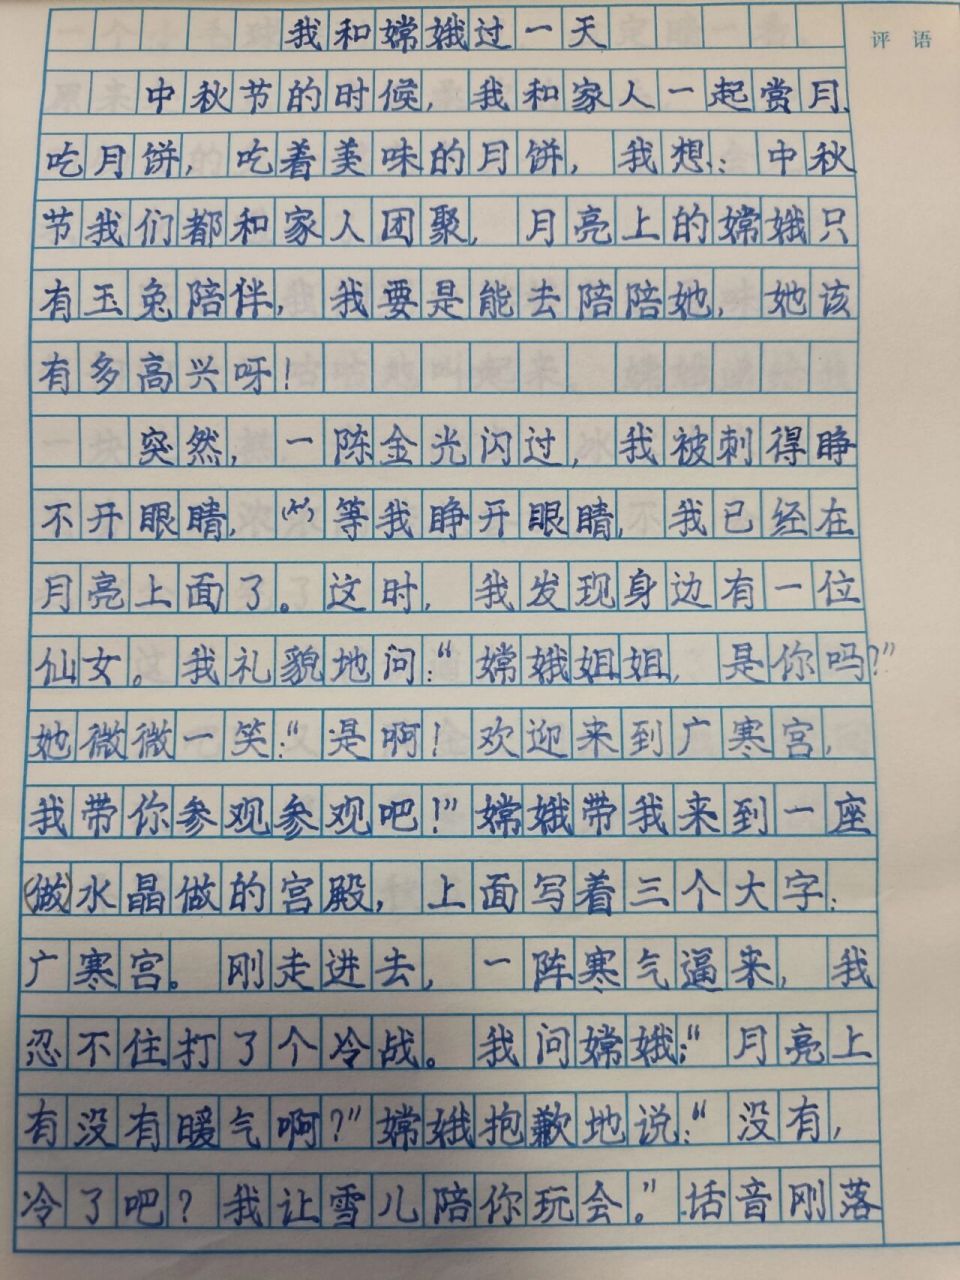 我和嫦娥过一天
评语
中秋节的时候，我和家人一起赏月、
吃月饼，吃着美味的月饼，我想：中秋
节我们都和家人团聚，月亮上的嫦娥只
有玉兔陪伴，我要是能去陪陪她，她该
有多高兴呀！
突然，一阵金光闪过，我被刺得睁
不开眼睛，等我睁开眼睛，我已经在
月亮上面了。这时，我发现身边有一位
仙女。我礼貌地问：“嫦娥姐姐，是你吗？”
她微微一笑：“是啊！欢迎来到广寒宫，
我带你参观参观吧！”嫦娥带我来到一座
(做)水晶做的宫殿，上面写着三个大字：
广寒宫。刚走进去，一阵寒气逼来，我
忍不住打了个冷战。我问嫦娥：“月亮上
有没有暖气啊？”嫦娥抱歉地说：“没有，
冷了吧？我让雪儿陪你玩会。”话音刚落